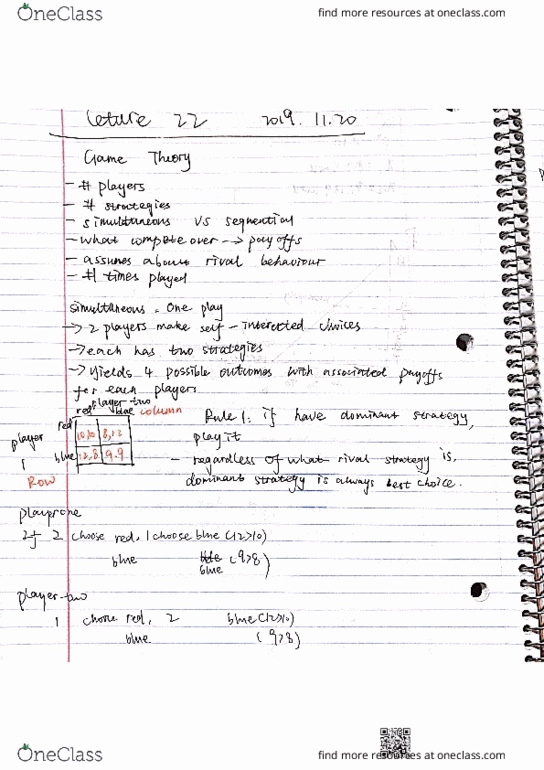 OneClass
find more resources at oneclass.com
Leture 22 2019. 11.20
Game Theory
- # players
- # strategies
- simultaneous VS sequential
- what compete over -> payoffs
- assumes about rival behaviour
- # times played
simultaneous. One play
-> 2 players make self-interested choices
-> each has two strategies
-> Yields 4 possible outcomes with associated payoffs
for each players
player two
red blue column
player 1
Row
red 10,10 8,12
blue 12,8 9.9
Rule 1: if have dominant strategy,
play it
- regardless of what rival strategy is,
dominant strategy is always best choice.
player one
2 choose red, 1 choose blue (12>10)
blue blue (9>8)
player two
1 chose red, 2 blue (12>10)
blue (9>8)
OneClass
find more resources at oneclass.com